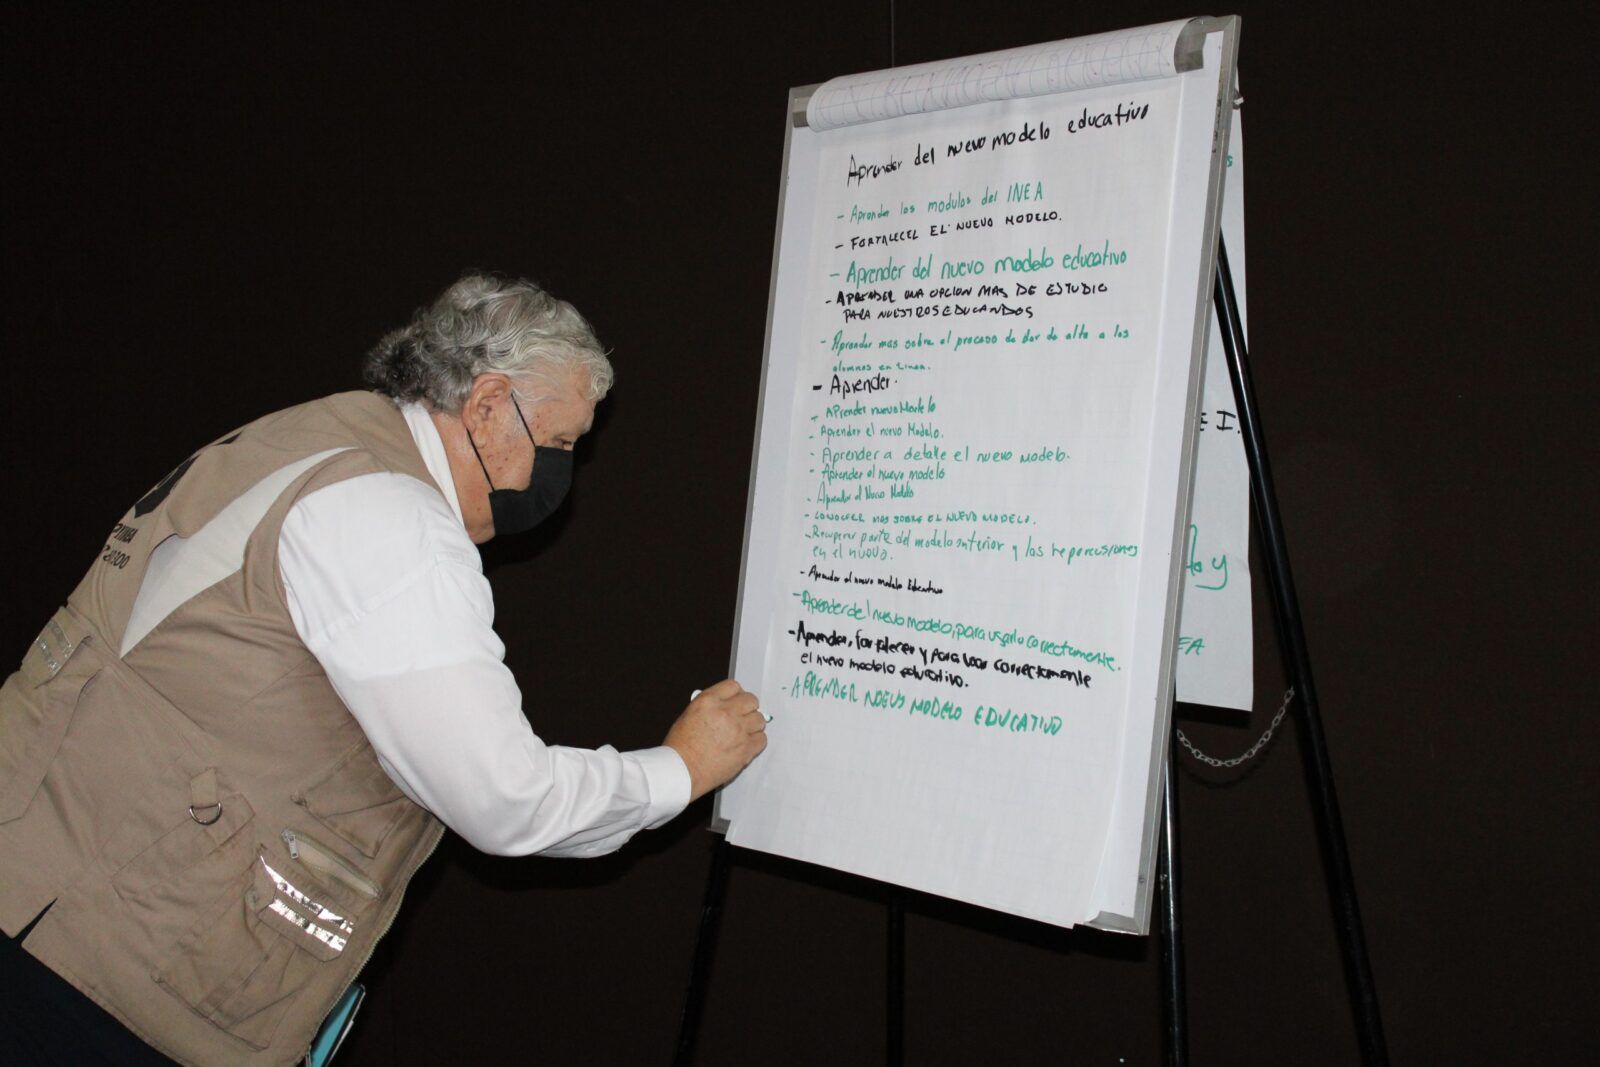 Aprender del nuevo modelo educativo
- Aprender los modulos del INEA
- FORTALECEL EL NUEVO MODELO.
- Aprender del nuevo modelo educativo
- APRENDER UNA OPCION MAS DE ESTUDIO
PARA NUESTROS EDUCANDOS
- Aprender mas sobre el proceso de dar de alta a los
alumnos en Linea.
- Aprender.
- APrender nuevo Modelo
- Aprender el nuevo Modelo.
- Aprender a detalle el nuevo modelo.
- Aprender el nuevo modelo
- Aprender el Nuevo Modelo
- CONOCER MAS SOBRE EL NUEVO MODELO.
- Recuperar parte del modelo anterior y las repercusiones
en el nuevo.
- Aprender el nuevo modelo Educativo
- Aprender del nuevo modelo, para usarlo correctamente.
- Aprender, fortalecer y para usar correctamente
el nuevo modelo educativo.
- APRENDER NUEVS MODELO EDUCATIVO
E I.
y
EA